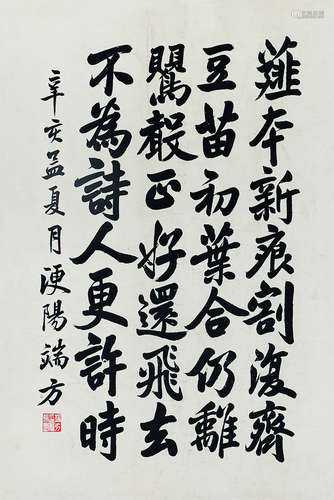 薤本新痕割復齊
豆苗初葉合仍離
鷺殼正好還飛去
不為詩人更許時
辛亥孟夏月浭陽端方